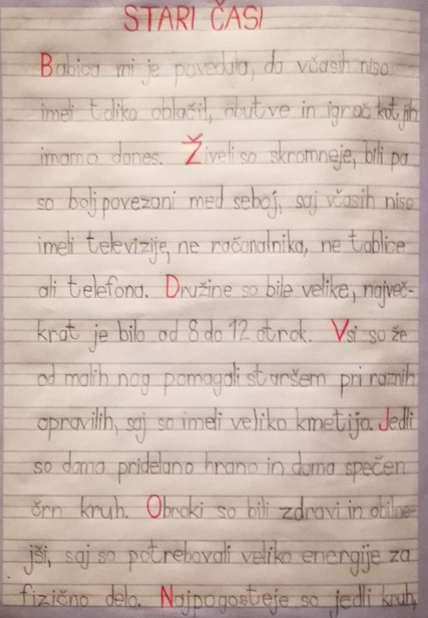 STARI ČASI
Babica mi je povedala, da včasih niso
imeli toliko oblačil, obutve in igrač kot jih
imamo danes. Živeli so skromneje, bili pa
so bolj povezani med seboj, saj včasih niso
imeli televizije, ne računalnika, ne tablice
ali telefona. Družine so bile velike, največ-
krat je bilo od 8 do 12 otrok. Vsi so že
od malih nog pomagali staršem pri raznih
opravilih, saj so imeli veliko kmetijo. Jedli
so doma pridelano hrano in doma spečen
črn kruh. Obroki so bili zdravi in obilne-
jši, saj so potrebovali veliko energije za
fizično delo. Najpogosteje so jedli kruh,